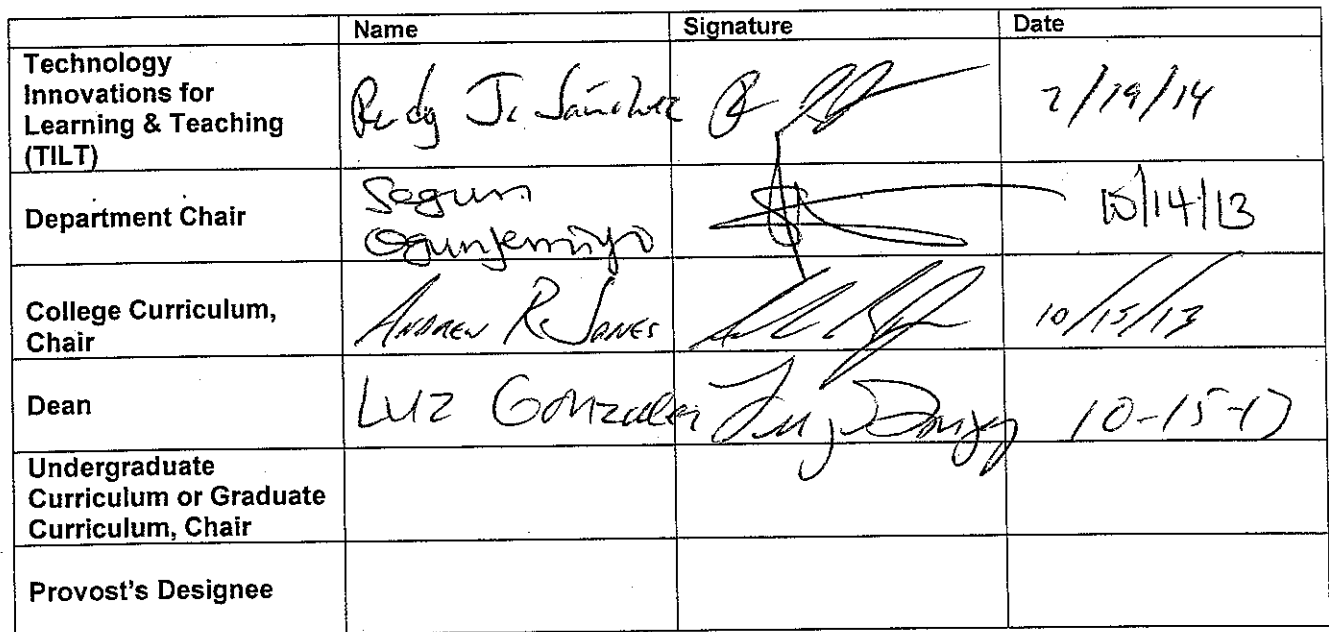 Name Signature Date
Technology
Innovations for
Learning & Teaching
(TILT)
Rudy J. Sánchez 2/19/14
Department Chair
Segun
Ogunjemiyo
10/14/13
College Curriculum,
Chair
Andrew R. Jones 10/15/13
Dean
Luz Gonzalez 10-15-13
Undergraduate
Curriculum or Graduate
Curriculum, Chair
Provost's Designee